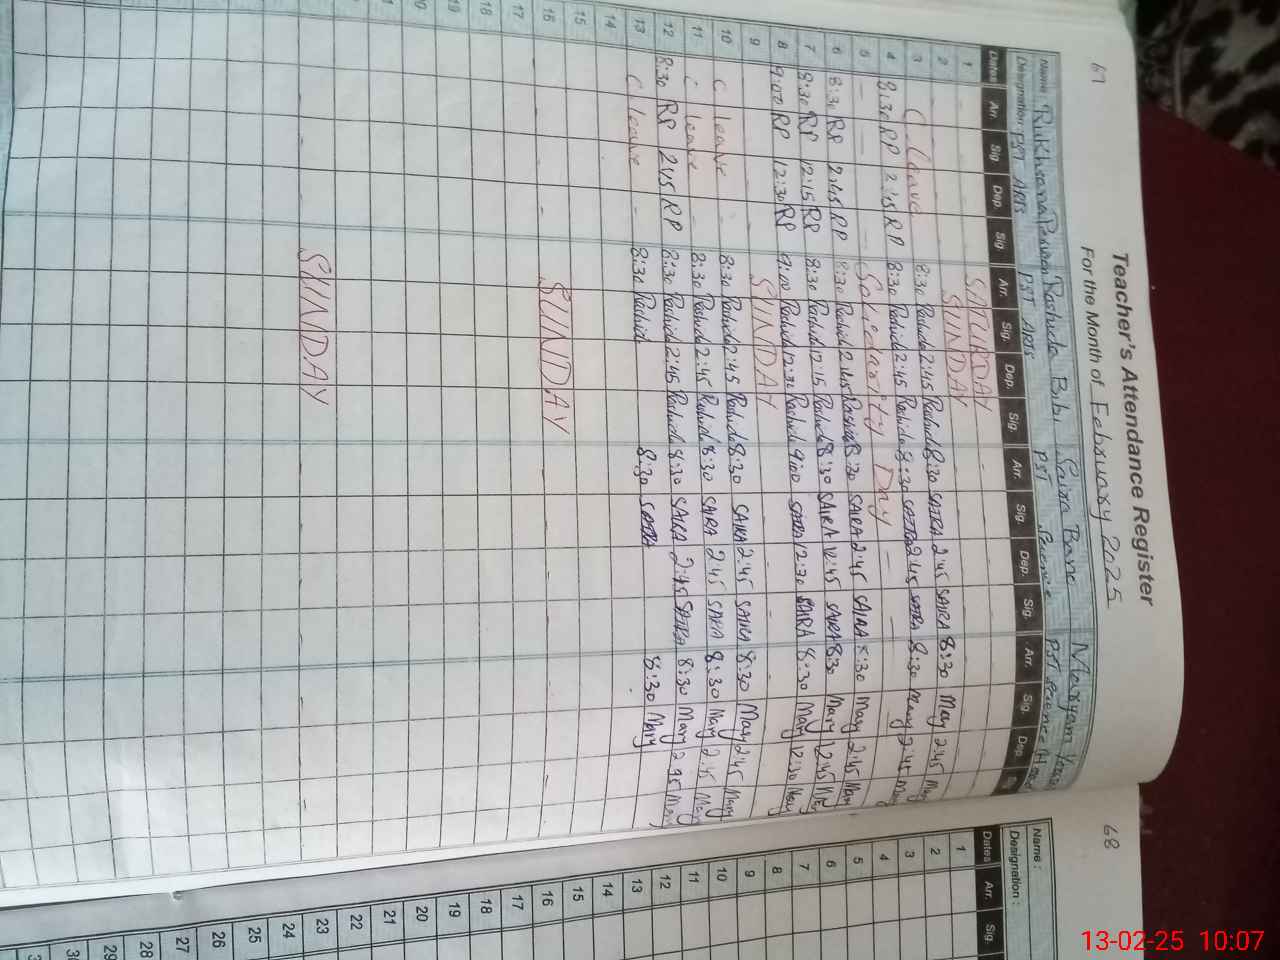 67
Teacher's Attendance Register
For the Month of February 2025
Name: Rukhsana Parveen Rashida Bibi Saira Bano Maryam
Designation: PST Arts PST Arts PST Science PST Science (H
Dates Arr. Sig. Dep. Sig. Arr. Sig. Dep. Sig. Arr. Sig. Dep. Sig. Arr. Sig. Dep. S
1 - SATURDAY -
2 SUNDAY
3 C leave 8:30 Rashida 2:45 Rashida 8:30 SAIRA 2:45 SAIRA 8:30 Mary 2:45 Mary
4 8:30 RP 2:45 RP 8:30 Rashida 2:45 Rashida 8:30 SAIRA 2:45 SAIRA 8:30 Mary 2:45 Mary
5 - - - Soledarity Day - -
6 8:30 RP 2:45 RP 8:30 Rashida 2:45 Rashida 8:30 SAIRA 2:45 SAIRA 8:30 Mary 2:45 Mary
7 8:30 RP 12:15 RP 8:30 Rashida 12:15 Rashida 8:30 SAIRA 12:45 SAIRA 8:30 Mary 12:45 Mary
8 9:00 RP 12:30 RP 9:00 Rashida 12:30 Rashida 9:00 SAIRA 12:30 SAIRA 8:30 Mary 12:30 Mary
9 SUNDAY
10 C leave - 8:30 Rashida 2:45 Rashida 8:30 SAIRA 2:45 SAIRA 8:30 Mary 2:45 Mary
11 C leave - 8:30 Rashida 2:45 Rashida 8:30 SAIRA 2:45 SAIRA 8:30 Mary 2:45 Mary
12 8:30 RP 2:45 RP 8:30 Rashida 2:45 Rashida 8:30 SAIRA 2:45 SAIRA 8:30 Mary 2:45 Mary
13 C leave - 8:30 Rashida 8:30 SAIRA 8:30 Mary
14
15
16 SUNDAY
17
18
19
20
SUNDAY
68
Name:
Designation:
Dates Arr. Sig.
1
2
3
4
5
6
7
8
9
10
11
12
13
14
15
16
17
18
19
20
21
22
23
24
25
26
27
28
29
13-02-25 10:07